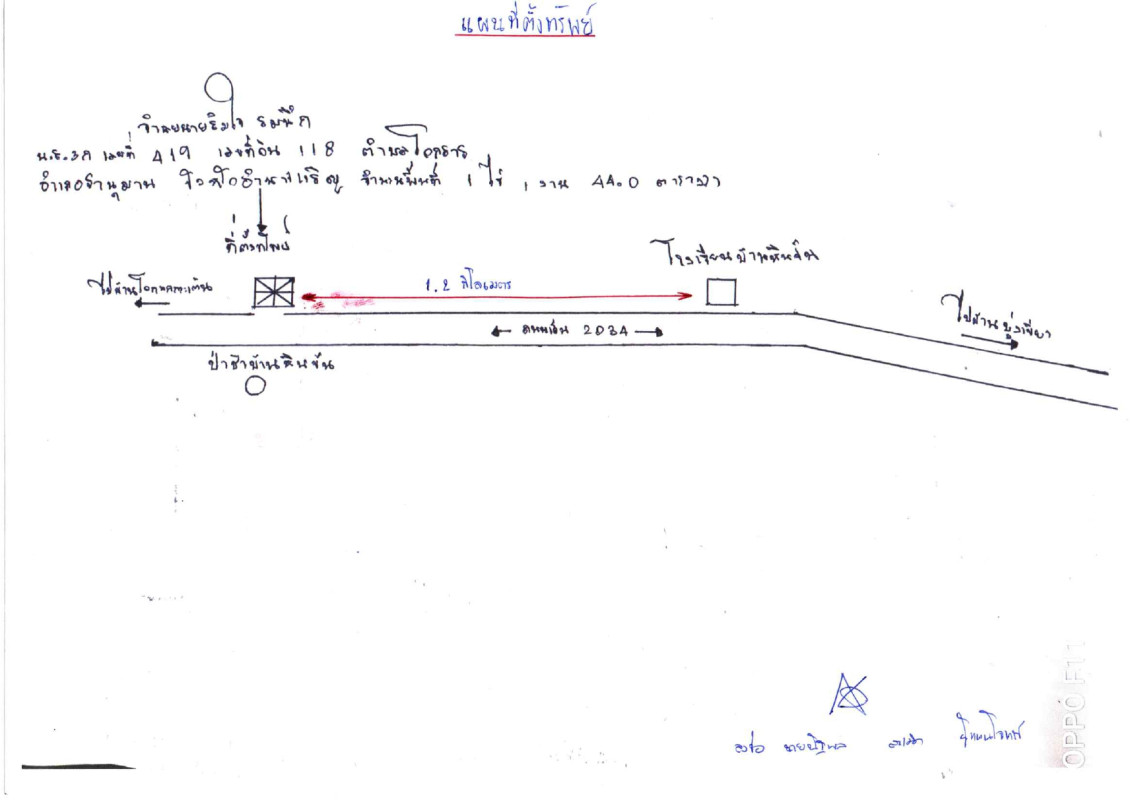 แผนที่ตั้งทรัพย์
จำเลยนายสมใจ
น.ส.3ก เลขที่ 419 เลขที่ดิน 118 ตำบลโคกสาร
อำเภอชานุมาน จังหวัดอำนาจเจริญ จำนวนพื้นที่ 1 ไร่ 1 งาน 44.0 ตารางวา
ที่ตั้งทรัพย์
โรงเรียนบ้านหินขัน
ไปบ้าน
1.2 กิโลเมตร
ไปบ้านบุ่งเขียว
ถนนเส้น 2034
ป่าช้าบ้านหินขัน
ลงชื่อ นาย ผู้แทนโจทก์
OPPO F11